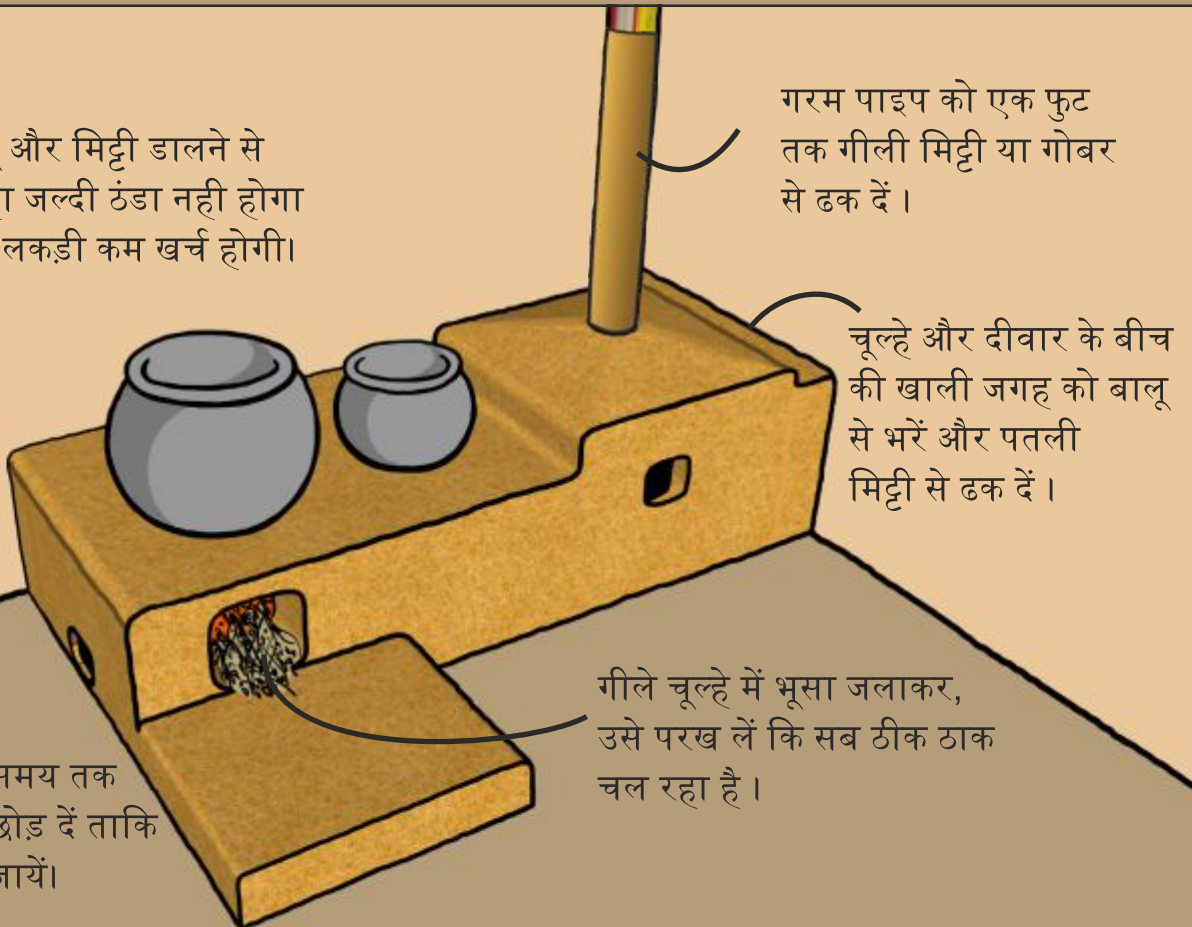 और मिट्टी डालने से
जल्दी ठंडा नही होगा
लकड़ी कम खर्च होगी।
गरम पाइप को एक फुट
तक गीली मिट्टी या गोबर
से ढक दें।
चूल्हे और दीवार के बीच
की खाली जगह को बालू
से भरें और पतली
मिट्टी से ढक दें।
गीले चूल्हे में भूसा जलाकर,
उसे परख लें कि सब ठीक ठाक
चल रहा है।
तक
दें ताकि